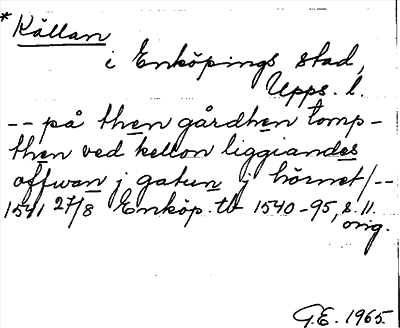 * Källan
i Enköpings stad,
Upps. l.
-- på then gårdhen tomp-
then ved kellon liggiandes
offwan j gatun j hörnet/--
1541 27/8 Enköp. tb 1540-95, s. 11.
orig.
G.E. 1965.